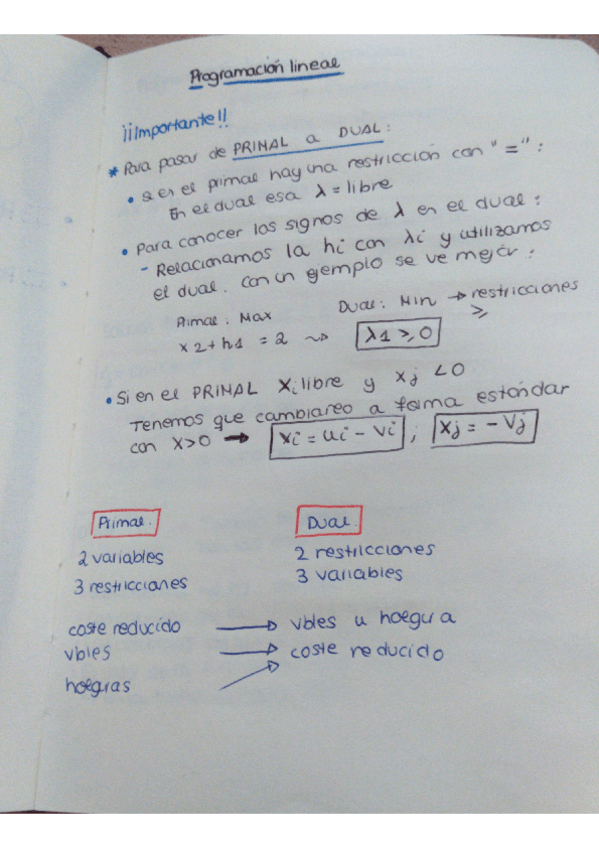 Programación lineal
¡¡Importante!!
* Para pasar de PRINAL a DUAL:
• si en el primal hay una restricción con "=":
En el dual esa λ = libre
• Para conocer los signos de λ en el dual:
- Relacionamos la hi con λi y utilizamos
el dual. Con un ejemplo se ve mejor:
Primal: Max Dual: Min → restricciones
≥
x2 + h1 = 2 ⇝ λ1 ≥ 0
• Si en el PRINAL Xi libre y xj < 0
Tenemos que cambiarlo a forma estándar
con X>0 → Xi = ui - vi ; Xj = - Vj
Primal. Dual.
2 variables 2 restricciones
3 restricciones 3 variables
coste reducido → vbles u holgura
vbles → coste reducido
holguras →